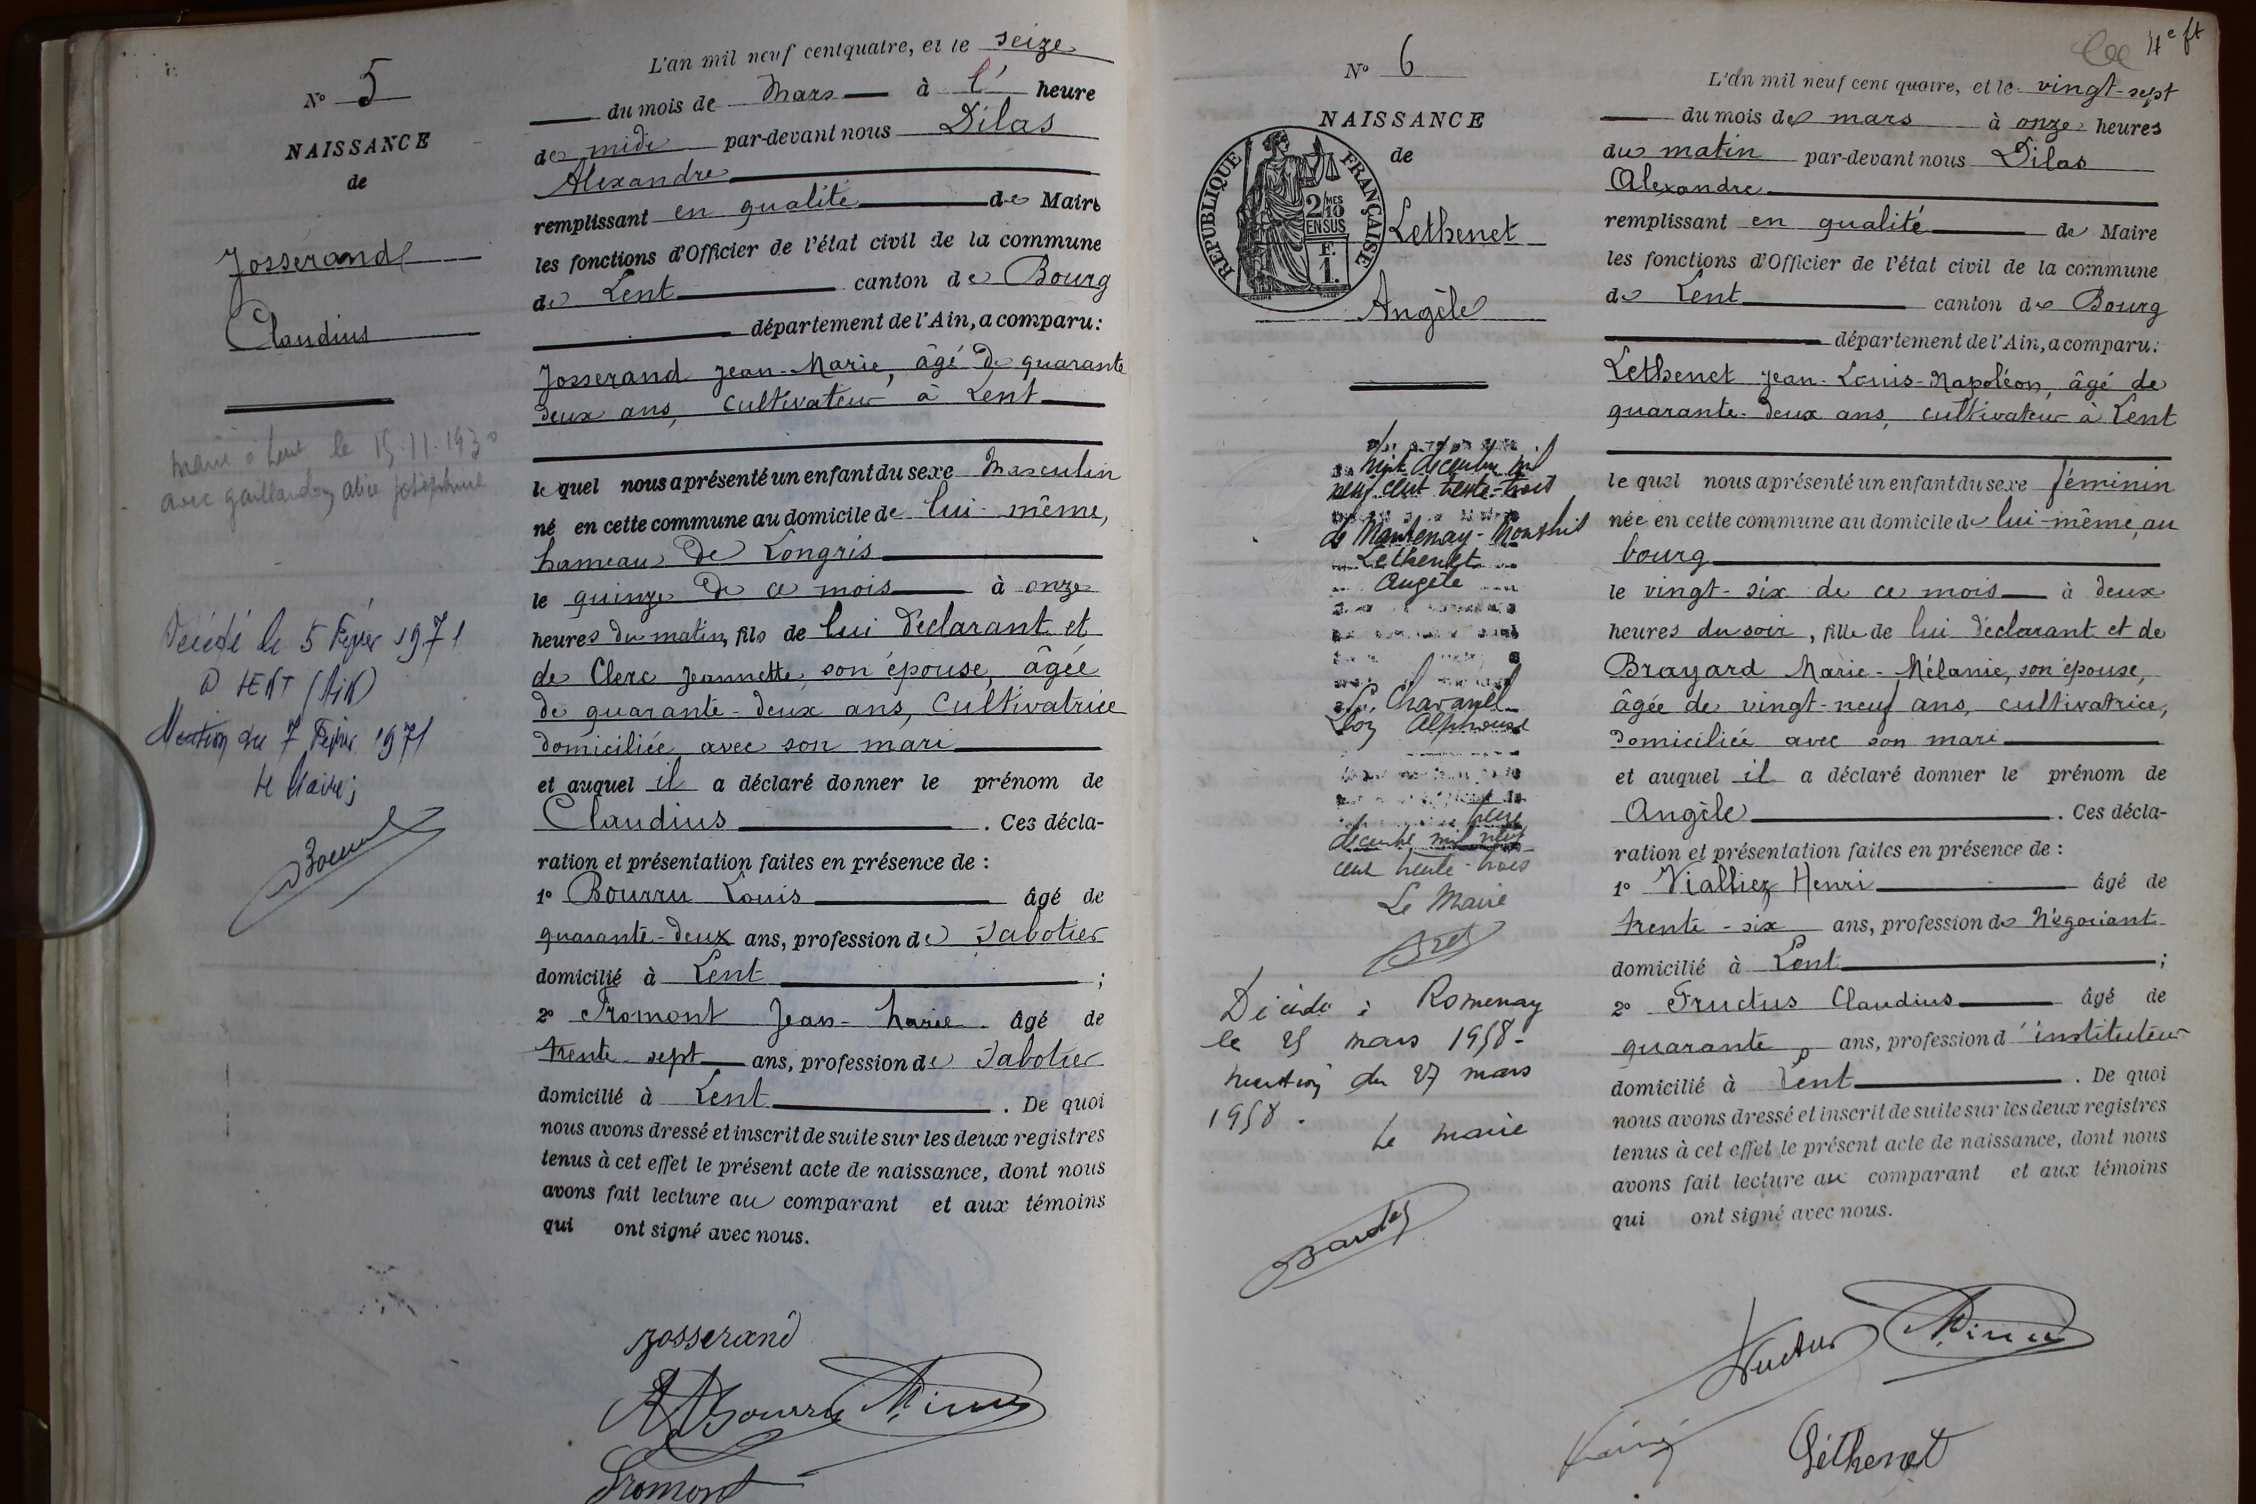 N° 5
NAISSANCE
de
Josserand
Claudius
marié à Lent le 15.11.1930
avec
Décédé le 5 Février 1971
à LENT (AIN)
Mention du 7 Février 1971
Le Maire;
L'an mil neuf cent quatre, et le seize
du mois de Mars à l' heure
de midi par-devant nous Dilas
Alexandre
remplissant en qualité de Maire
les fonctions d'Officier de l'état civil de la commune
de Lent canton de Bourg
département de l'Ain, a comparu:
Josserand Jean-Marie, âgé de quarante
deux ans, cultivateur à Lent
le quel nous a présenté un enfant du sexe Masculin
né en cette commune au domicile de lui-même,
hameau de Longris
le quinze de ce mois à onze
heures du matin, fils de lui déclarant et
de Clerc Jeannette, son épouse, âgée
de quarante-deux ans, Cultivatrice
domiciliée avec son mari
et auquel il a déclaré donner le prénom de
Claudius . Ces décla-
ration et présentation faites en présence de :
1° Bourru Louis âgé de
quarante-deux ans, profession de Sabotier
domicilié à Lent ;
2° Fromont Jean-Marie âgé de
trente-sept ans, profession de Sabotier
domicilié à Lent . De quoi
nous avons dressé et inscrit de suite sur les deux registres
tenus à cet effet le présent acte de naissance, dont nous
avons fait lecture au comparant et aux témoins
qui ont signé avec nous.
Josserand
Bourru
Fromont
4e ft
N° 6
NAISSANCE
de
REPUBLIQUE FRANÇAISE
2/10 MES
EN SUS
F.
1.
Lethenet
Angèle
huit décembre mil
neuf cent trente-trois
de Mantenay-Montlin
Lethenet
Angèle
Chavanel
Alphonse
décembre mil neuf
cent trente-trois
Le Maire
Décédée à Romenay
le 25 mars 1958-
mention du 27 mars
1958.
Le maire
L'an mil neuf cent quatre, et le vingt-sept
du mois de mars à onze heures
du matin par-devant nous Dilas
Alexandre
remplissant en qualité de Maire
les fonctions d'Officier de l'état civil de la commune
de Lent canton de Bourg
département de l'Ain, a comparu:
Lethenet Jean-Louis-Napoléon, âgé de
quarante-deux ans, cultivateur à Lent
le quel nous a présenté un enfant du sexe féminin
née en cette commune au domicile de lui-même, au
bourg
le vingt-six de ce mois à deux
heures du soir, fille de lui déclarant et de
Brayard Marie-Mélanie, son épouse,
âgée de vingt-neuf ans, cultivatrice,
domiciliée avec son mari
et auquel il a déclaré donner le prénom de
Angèle . Ces décla-
ration et présentation faites en présence de :
1° Vialliez Henri âgé de
trente-six ans, profession de Négociant
domicilié à Lent ;
2° Fructus Claudius âgé de
quarante ans, profession d'instituteur
domicilié à Lent . De quoi
nous avons dressé et inscrit de suite sur les deux registres
tenus à cet effet le présent acte de naissance, dont nous
avons fait lecture au comparant et aux témoins
qui ont signé avec nous.
Fructus
Léthenet